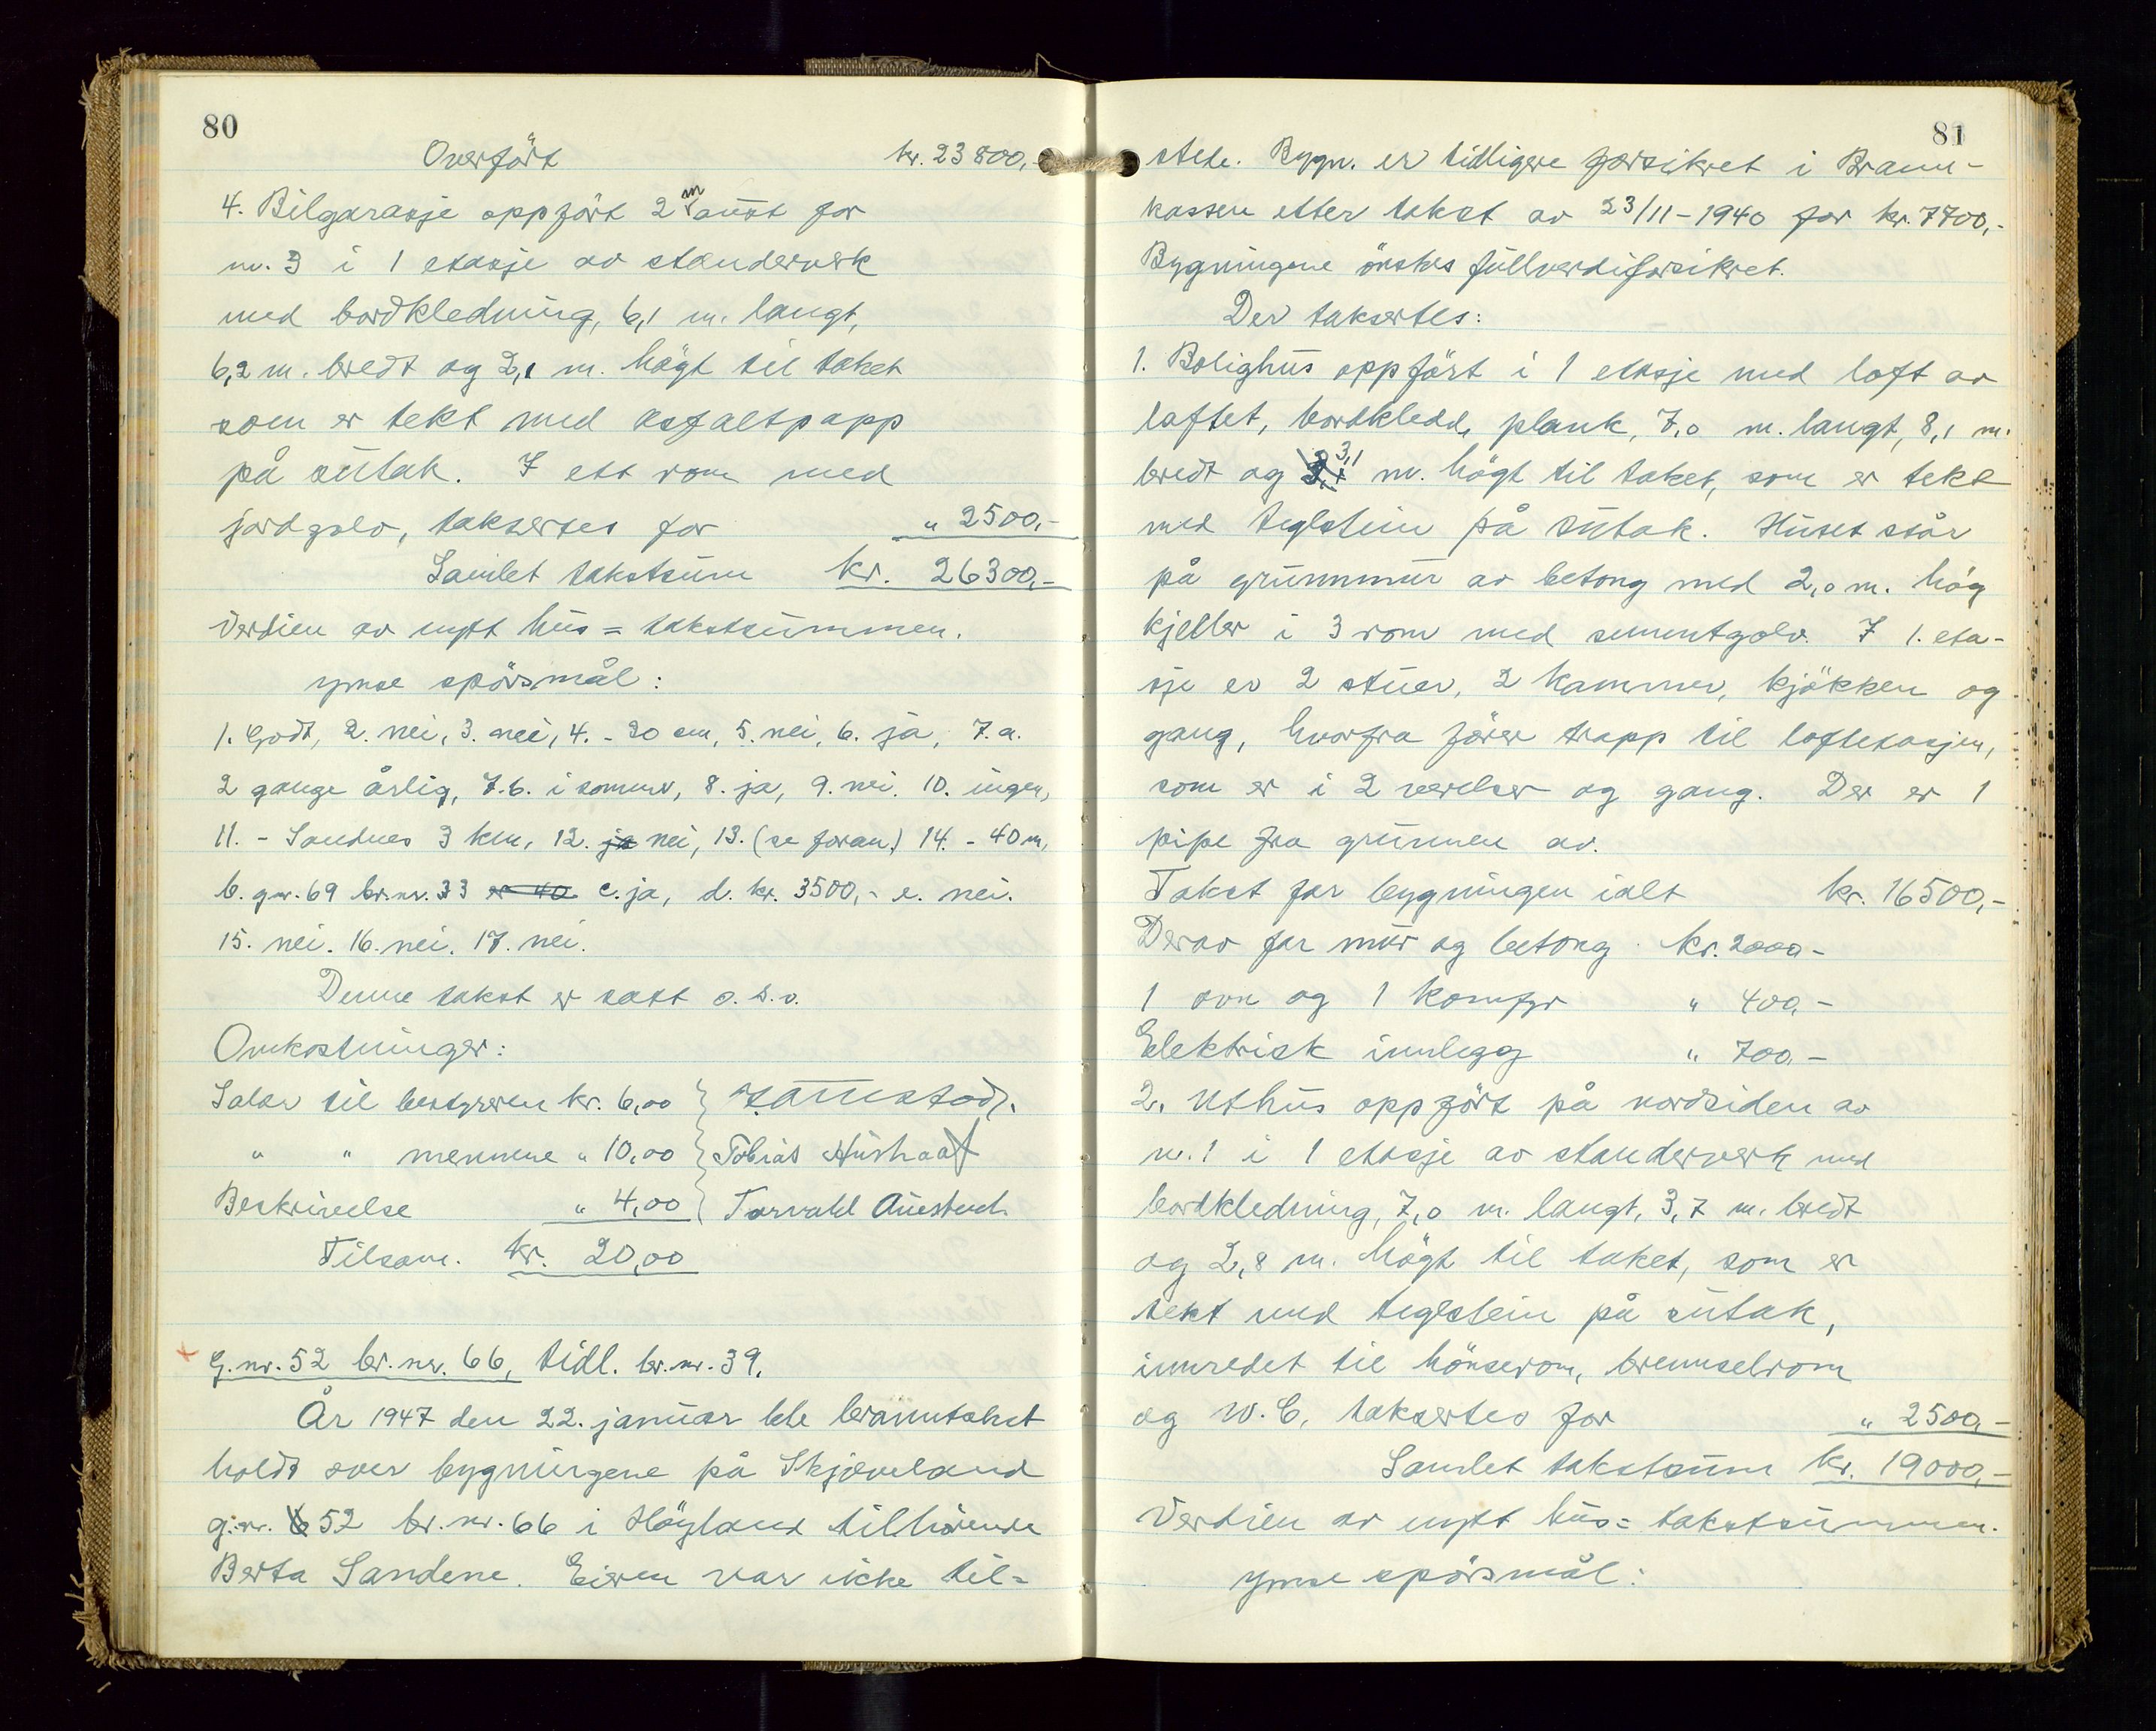 80
Overført kr. 23800,-
4. Bilgarasje oppført 2 m aust for
nr. 3 i 1 etasje av standerverk
med bordkledning, 6,1 m. langt,
6,2 m. bredt og 2,1 m. högt til taket
som er tekt med asfaltpapp
på sutak. I ett rom med
jordgolv, taksertes for " 2500,-
Samlet takstsum kr. 26300,-
Verdien av nytt hus = takstsummen.
Ymse spörsmål:
1. Godt, 2. nei, 3. nei, 4. - 20 cm, 5. nei, 6. ja, 7.a.
2 gange årlig, 7.b. i sommer, 8. ja, 9. nei, 10. ingen,
11. - Sandnes 3 km, 12. ja nei, 13. (se foran) 14. - 40 m,
b. gnr. 69 br.nr. 33 er 40 c. ja, d. kr. 3500,- e. nei.
15. nei. 16. nei. 17. nei.
Denne takst er satt o.s.v.
Omkostninger:
Salar til bestyreren kr. 6,00
" " mennene " 10,00 Tobias
Beskrivelse " 4,00 Torvald Austbech
Tilsam. kr. 20,00
G.nr. 52 br.nr. 66, tidl. br.nr. 39.
År 1947 den 22. januar ble branntakst
holdt over bygningene på Skjæveland
g.nr. 6 52 br.nr. 66 i Höyland tilhörende
Berta Sandene. Eieren var ikke til=
81
stede. Bygn. er tidligere forsikret i Brann-
kassen etter takst av 23/11-1940 for kr. 7700,-
Bygningene önskes fullverdiforsikret.
Der taksertes:
1. Bolighus oppfört i 1 etasje med loft av
laftet, bordkledd, plank, 7,0 m. langt, 8,1 m.
bredt og 3,1 m. högt til taket, som er tekt
med teglstein på sutak. Huset står
på grunnmur av betong med 2,0 m. hög
kjeller i 3 rom med sementgolv. I 1. eta-
sje er 2 stuer, 2 kammer, kjökken og
gang, hvorfra förer trapp til loftetasjen,
som er i 2 værelser og gang. Der er 1
pipe fra grunnen av.
Takst for bygningen ialt kr. 16500,-
Derav for mur og betong kr. 2000-
1 ovn og 1 komfyr " 400,-
Elektrisk innlegg " 700,-
2. Uthus oppfört på nordsiden av
nr. 1 i 1 etasje av standerverk med
bordkledning, 7,0 m. langt, 3,7 m. bredt
og 2,8 m. högt til taket, som er
tekt med teglstein på sutak,
innredet til hönserom, brenselrom
og W.C, taksertes for " 2500,-
Samlet takstsum kr. 19000,-
Verdien av nytt hus = takstsummen.
Ymse spörsmål: